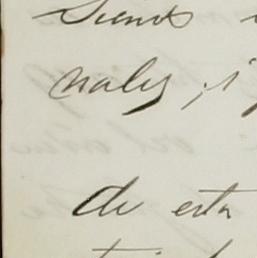 Siendo
nales, i
de esta